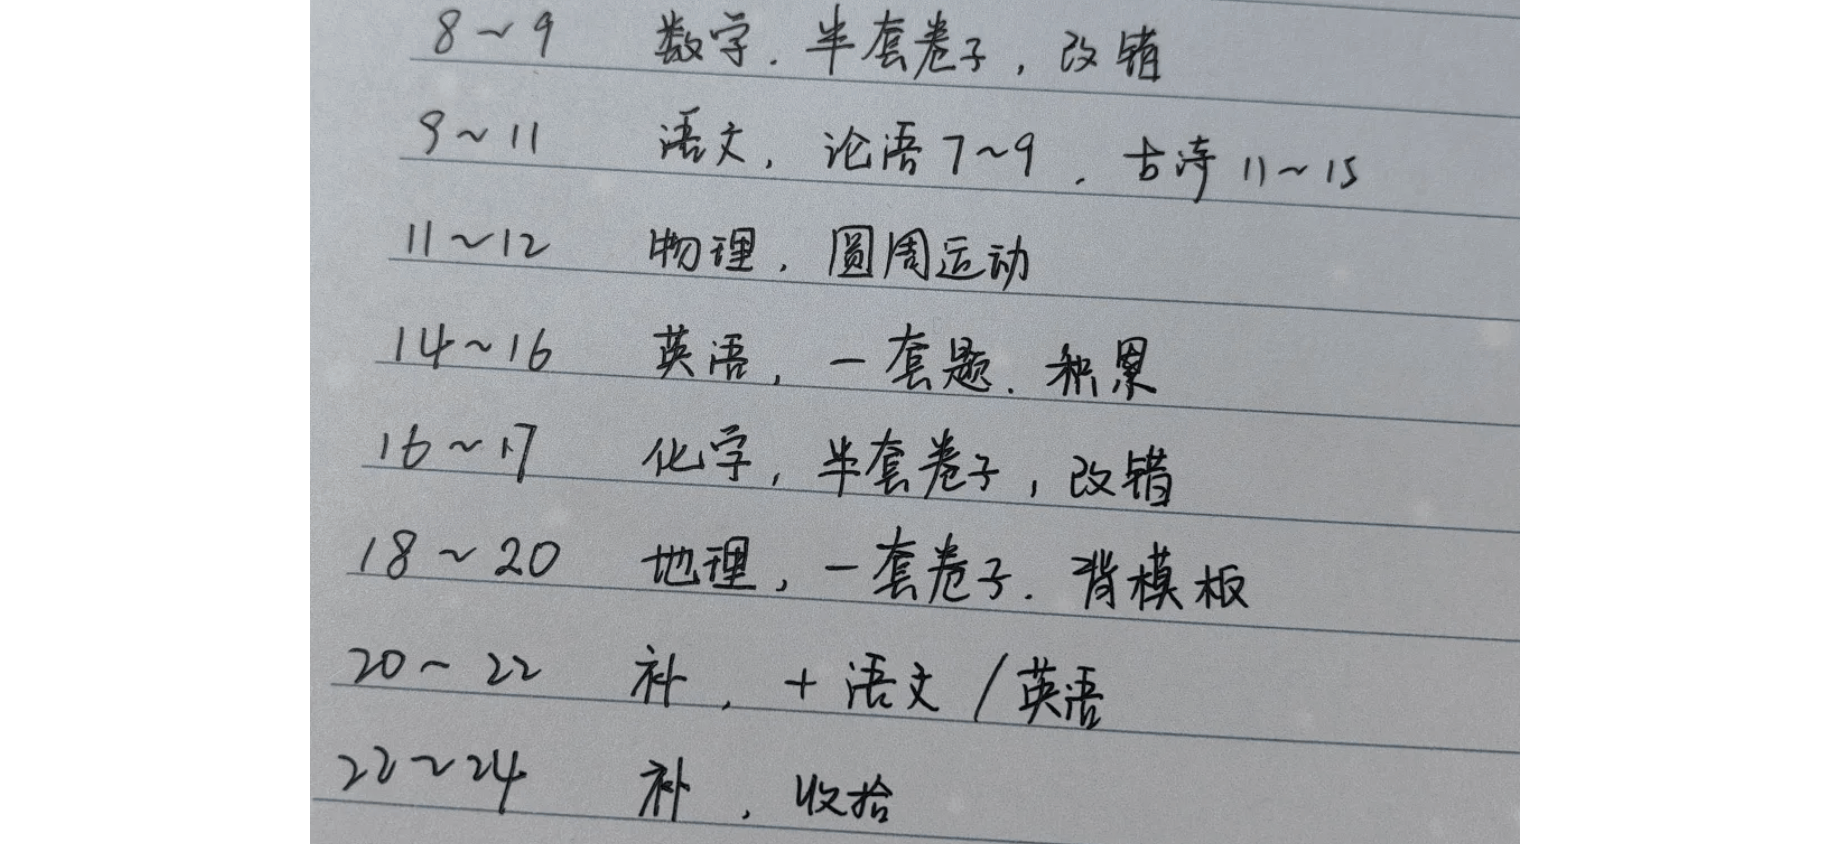 8~9 数学.半套卷子,改错
9~11 语文,论语7~9.古诗11~15
11~12 物理,圆周运动
14~16 英语,一套题.积累
16~17 化学,半套卷子,改错
18~20 地理,一套卷子.背模板
20~22 补,+语文/英语
22~24 补,收拾